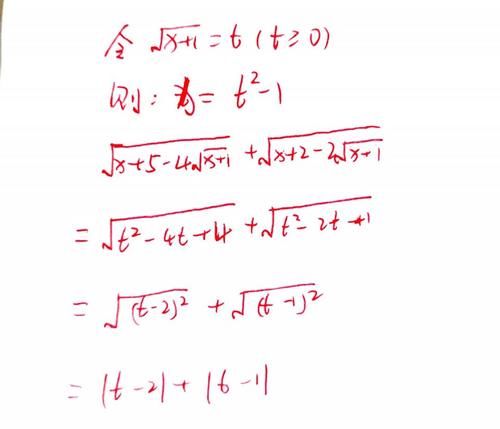 令 √(x+1) = t (t≥0)
则: x = t²-1
√(x+5-4√(x+1)) + √(x+2-2√(x+1))
= √(t²-4t+4) + √(t²-2t+1)
= √((t-2)²) + √((t-1)²)
= |t-2| + |t-1|